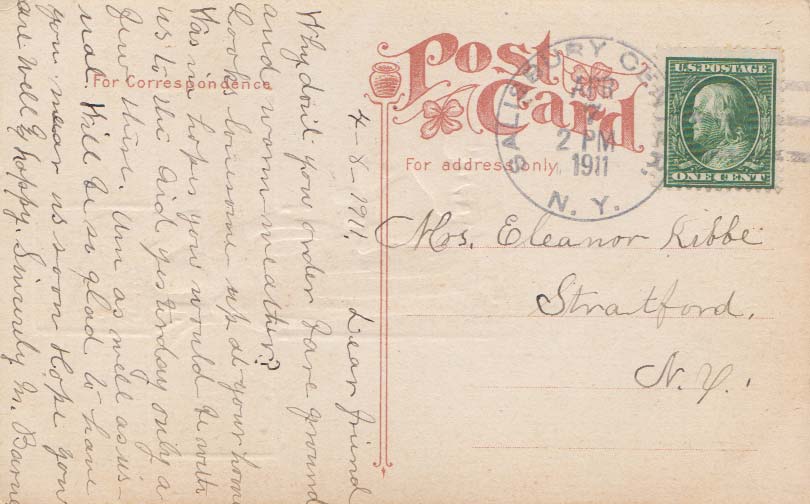 Post
Card
For Correspondence
For address only
SALISBURY CENTER.
APR
7
2 PM
1911
N. Y.
U.S. POSTAGE
ONE CENT
Mrs. Eleanor Kibbe
Stratford,
N.Y.
4-8-1911. Dear friend
Why don't you order bare ground
and warm weather?
Looks lonesome up at your home
Was in hopes you would be with
us to the Aid yesterday only a
few there. Am as well as us-
ual. Will be so glad to have
you near us soon Hope you
are well & happy. Sincerely M. Barne